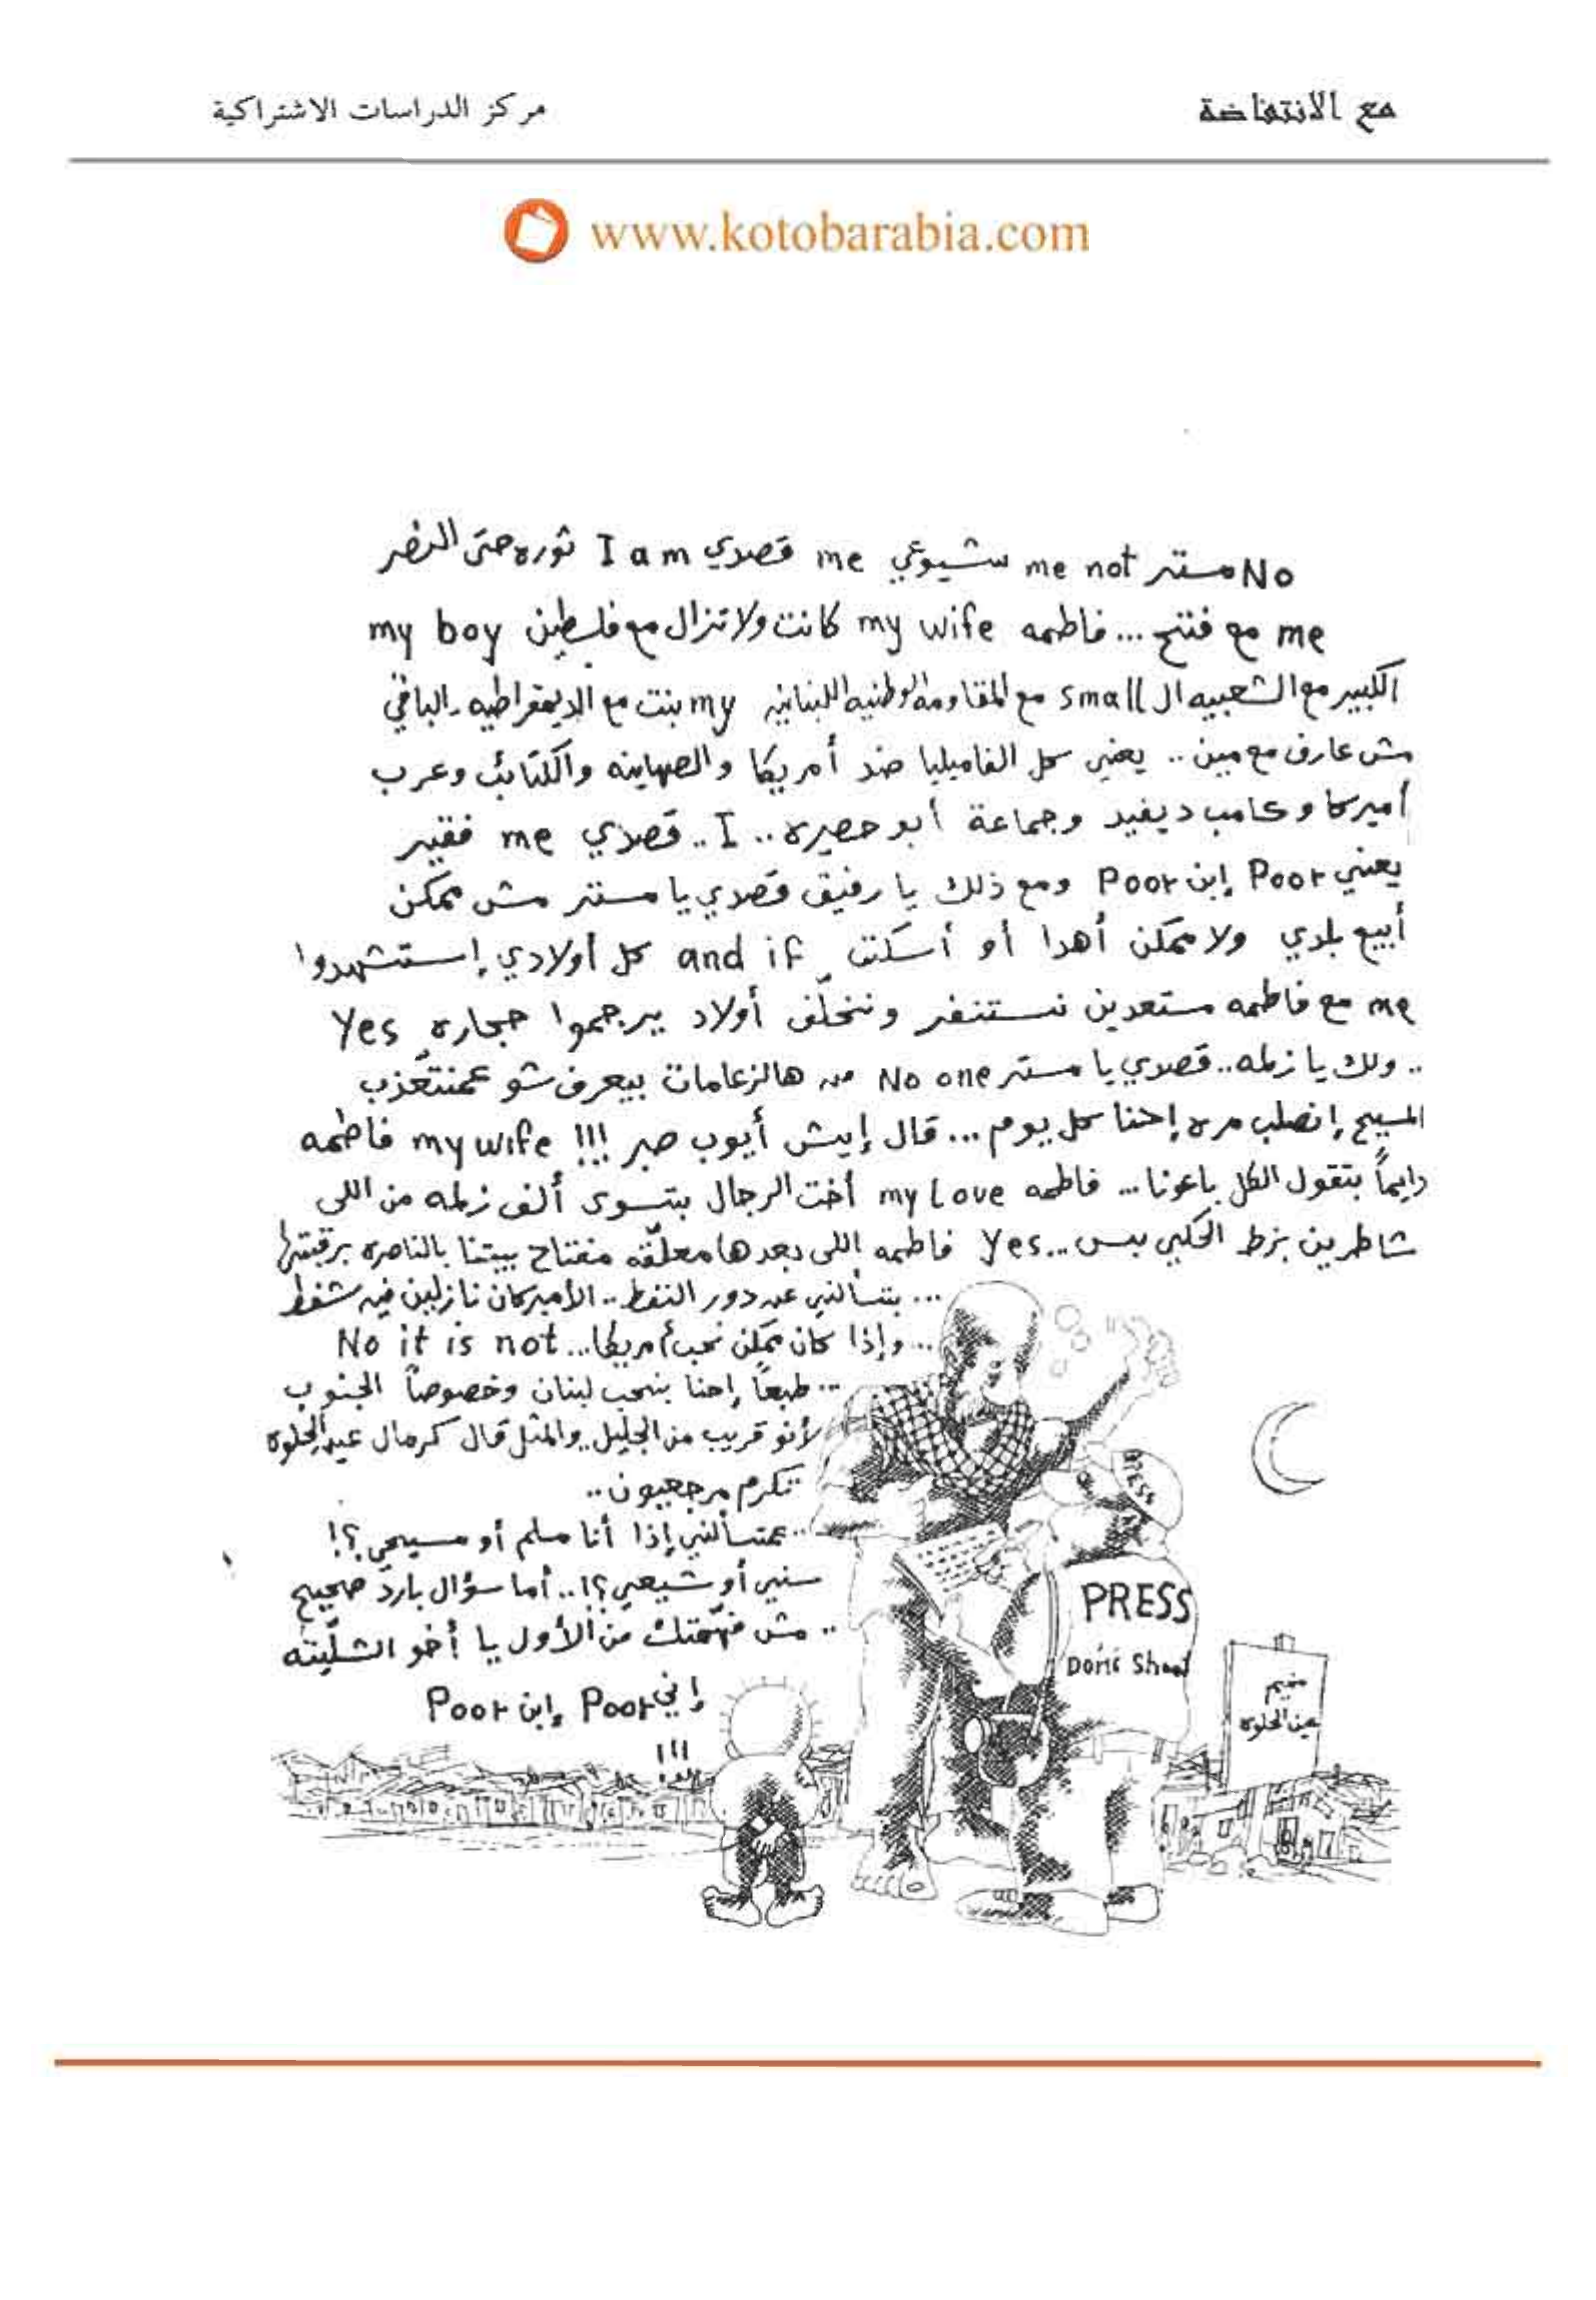 مع الانتفاضة
مركز الدراسات الاشتراكية
www.kotobarabia.com
No مستر me not شيوعي me قصدي I am ثوره حتى النصر
me مع فتح... فاطمه my wife كانت ولا تزال مع فلسطين my boy
الكبير مع الشعبيه ال small مع المقاومه الوطنيه اللبنانيه my بنت مع الديمقراطيه.. الباقي
مش عارف مع مين.. يعني كل الفاميليا ضد أمريكا والصهاينه والكتائب وعرب
أميركا وكامب ديفيد وجماعة أبو حصيره.. I.. قصدي me فقير
يعني Poor إبن Poor ومع ذلك يا رفيق قصدي يا مستر مش ممكن
أبيع بلدي ولا ممكن أهدا أو أسكت and if كل أولادي إستشهدوا
me مع فاطمه مستعدين نستنفر ونخلّف أولاد يرجموا حجاره Yes
.. ولك يا زلمه.. قصدي يا مستر No one من هالزعامات بيعرف شو عمنتعذب
المسيح إنصلب مره إحنا كل يوم... قال إيش أيوب صبر !!! my wife فاطمه
دايماً بتقول الكل باعونا... فاطمه my Love أخت الرجال بتسوى ألف زلمه من اللي
شاطرين بزط الحكي بس... Yes فاطمه اللي بعدها معلّقه مفتاح بيتنا بالناصره برقبتها
... بتسألني عن دور النفط.. الأميركان نازلين فيه شفط
... وإذا كان ممكن نحب أمريكا... No it is not
... طبعاً إحنا بنحب لبنان وخصوصاً الجنوب
لأنو قريب من الجليل.. والمثل قال كرمال عين الحلوه
تكرم مرجعيون..
.. عمتسألني إذا أنا مسلم أو مسيحي؟!
سني أو شيعي؟!.. أما سؤال بارد صحيح
.. مش فهّمتك من الأول يا أخو الشلّيته
إني Poor إبن Poor
!!!
PRESS
PRESS
Don't Shoot
مخيم
عين الحلوه